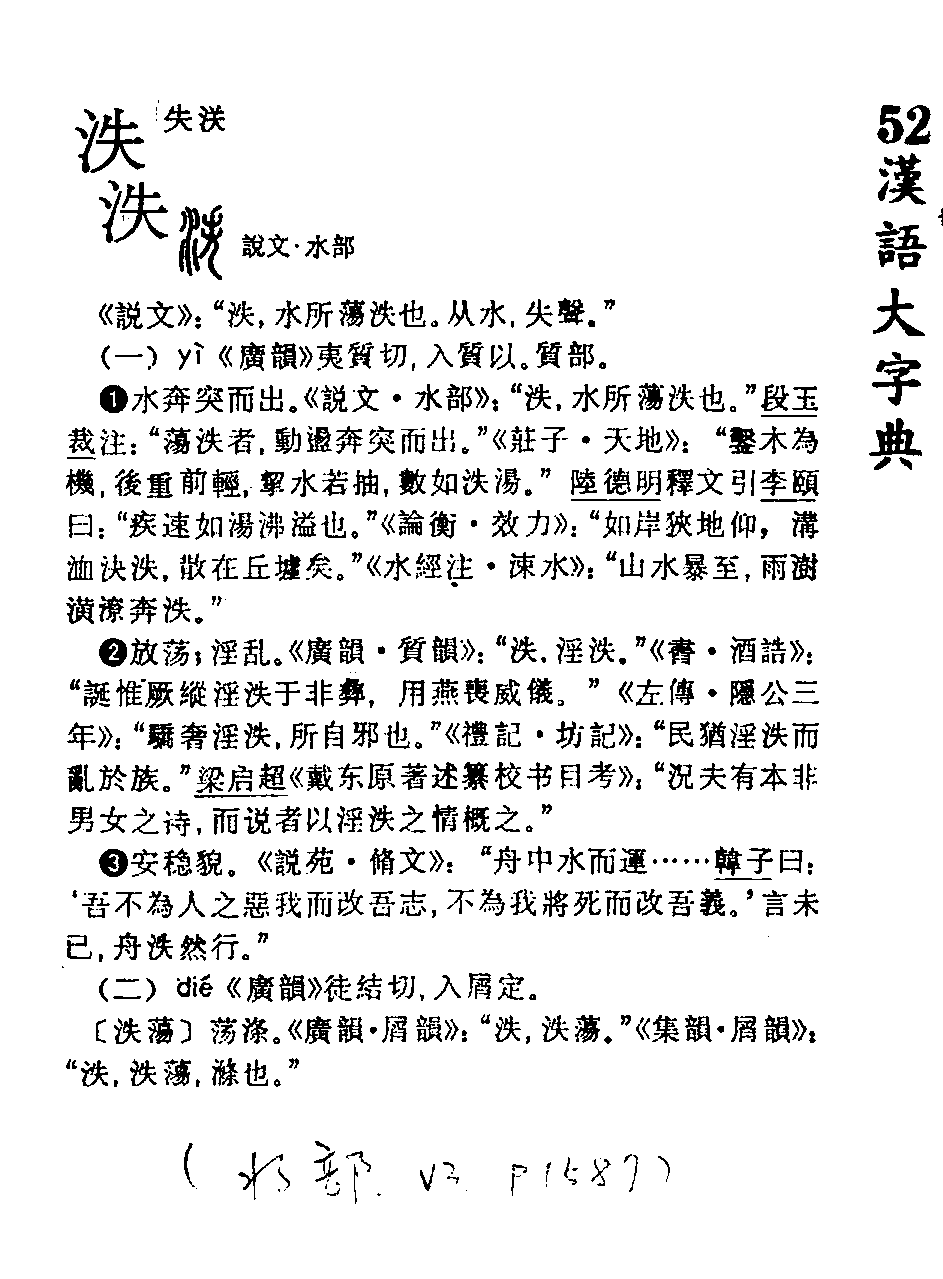 泆 失泆
泆 泆 說文·水部
《説文》：“泆，水所蕩泆也。从水，失聲。”
（一）yì《廣韻》夷質切，入質以。質部。
❶水奔突而出。《説文·水部》：“泆，水所蕩泆也。”段玉
裁注：“蕩泆者，動盪奔突而出。”《莊子·天地》：“鑿木為
機，後重前輕，挈水若抽，數如泆湯。”陸德明釋文引李頤
曰：“疾速如湯沸溢也。”《論衡·效力》：“如岸狹地仰，溝
洫決泆，散在丘墟矣。”《水經注·涑水》：“山水暴至，雨澍
潢潦奔泆。”
❷放荡；淫乱。《廣韻·質韻》：“泆，淫泆。”《書·酒誥》：
“誕惟厥縱淫泆于非彝，用燕喪威儀。”《左傳·隱公三
年》：“驕奢淫泆，所自邪也。”《禮記·坊記》：“民猶淫泆而
亂於族。”梁启超《戴东原著述纂校书目考》：“况夫有本非
男女之诗，而说者以淫泆之情概之。”
❸安稳貌。《説苑·脩文》：“舟中水而運……韓子曰：
‘吾不為人之惡我而改吾志，不為我將死而改吾義。’言未
已，舟泆然行。”
（二）dié《廣韻》徒結切，入屑定。
〔泆蕩〕荡涤。《廣韻·屑韻》：“泆，泆蕩。”《集韻·屑韻》：
“泆，泆蕩，滌也。”
（水部 V3 P1587）
52
漢語大字典